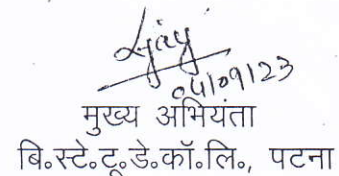 04/09/23
मुख्य अभियंता
बि॰स्टे॰टू॰डे॰कॉ॰लि॰, पटना